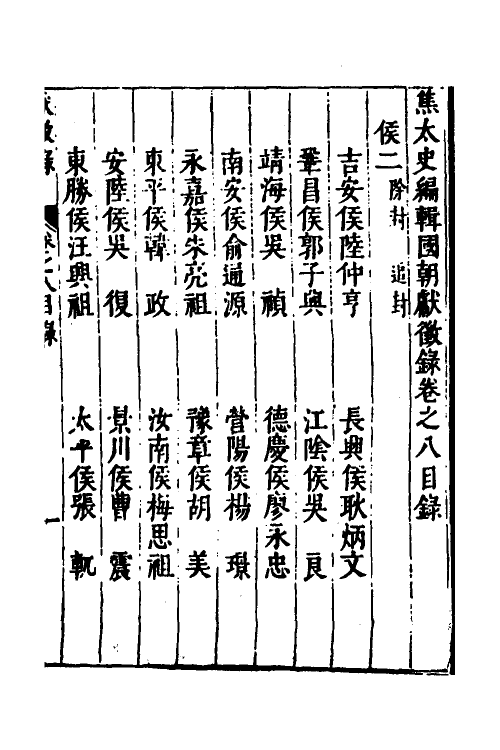 焦太史編輯國朝獻徵錄卷之八目錄
侯二 除封 追封
吉安侯陸仲亨 長興侯耿炳文
鞏昌侯郭子興 江陰侯吳良
靖海侯吳禎 德慶侯廖永忠
南安侯俞通源 營陽侯楊璟
永嘉侯朱亮祖 豫章侯胡美
東平侯韓政 汝南侯梅思祖
安陸侯吳復 景川侯曹震
東勝侯汪興祖 太平侯張軏
獻徵錄 卷之八目錄 一